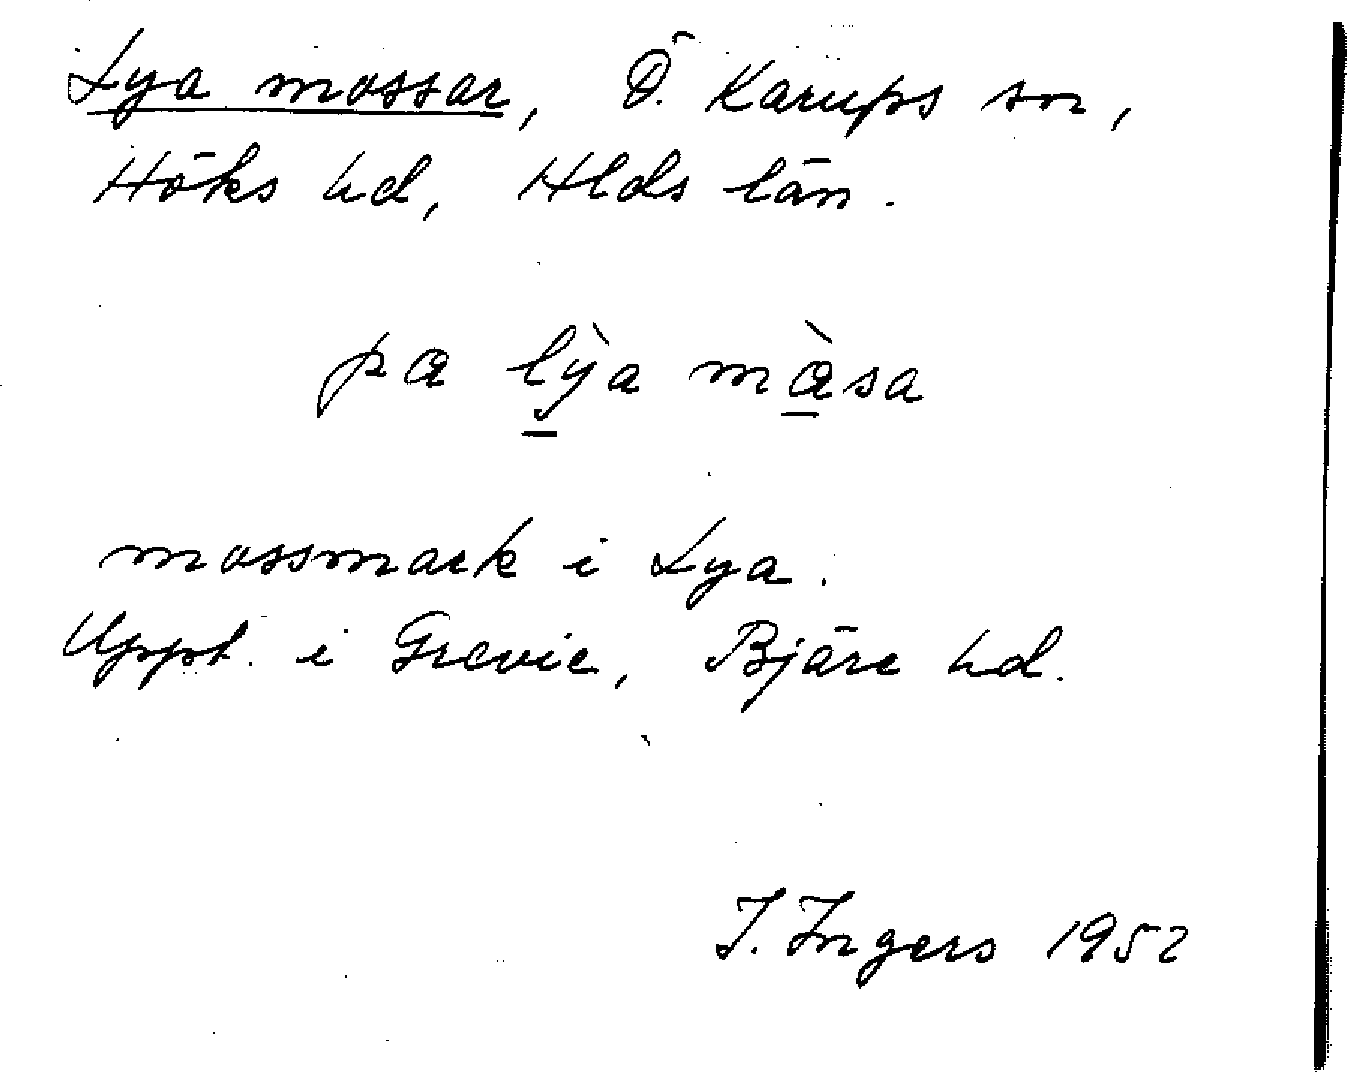 Lya mossar, Ö. Karups sn,
Höks hd, Hlds län.
pa lỳa màsa
mossmark i Lya.
Uppt. i Grevie, Bjäre hd.
I. Ingers 1952